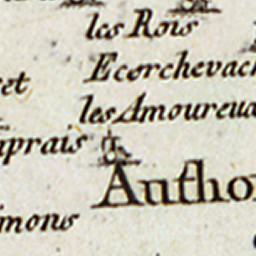 les Rois
Ecorchevach
et
les Amoureux
uprais
Autho
mons